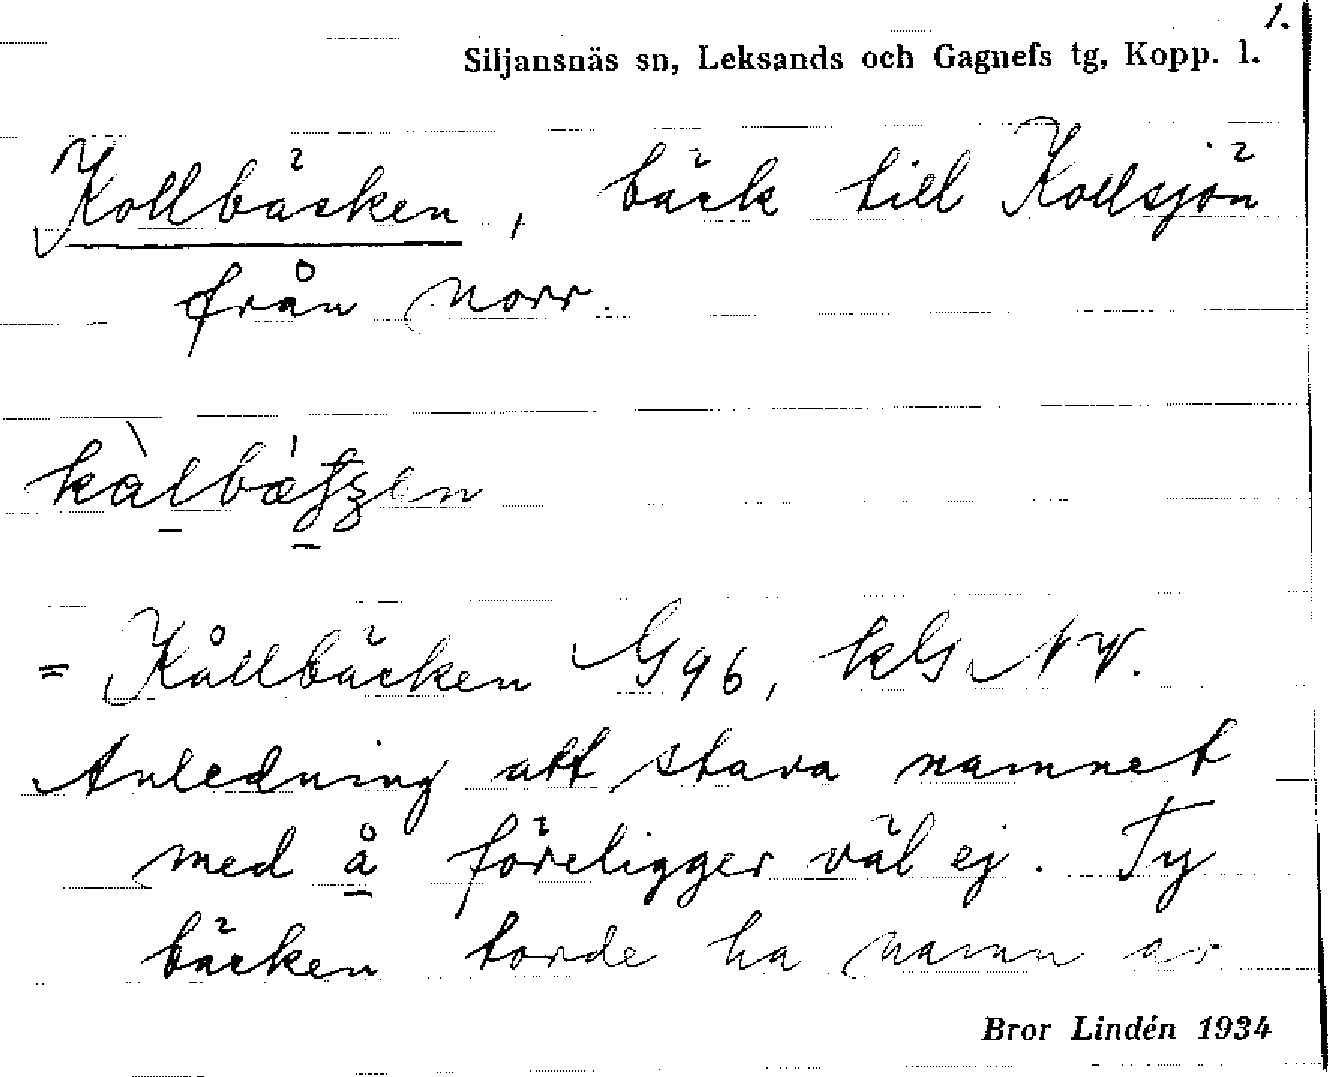 1.
Siljansnäs sn, Leksands och Gagnefs tg, Kopp. l.
Kollbäcken, bäck till Kollsjön
från norr.
= Kållbäcken G 96, kG NV.
Anledning att stava namnet
med å föreligger väl ej. Ty
bäcken torde ha namn av
Bror Lindén 1934